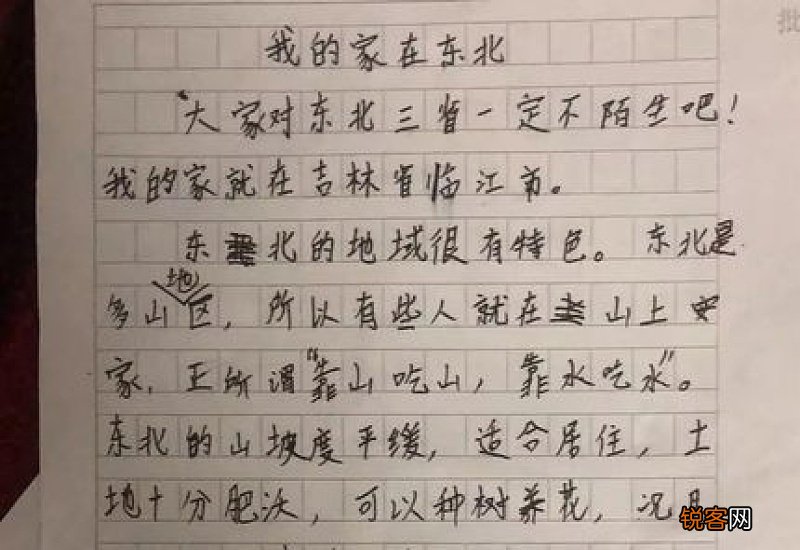 我的家在东北
大家对东北三省一定不陌生吧！
我的家就在吉林省临江市。
东北的地域很有特色。东北是
多山地区，所以有些人就在山上安
家，正所谓"靠山吃山，靠水吃水"。
东北的山坡度平缓，适合居住，土
地十分肥沃，可以种树养花，况且
锐客网